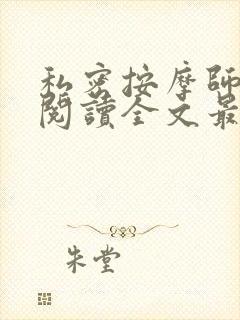 私密按摩師
閱讀全文最
朱堂